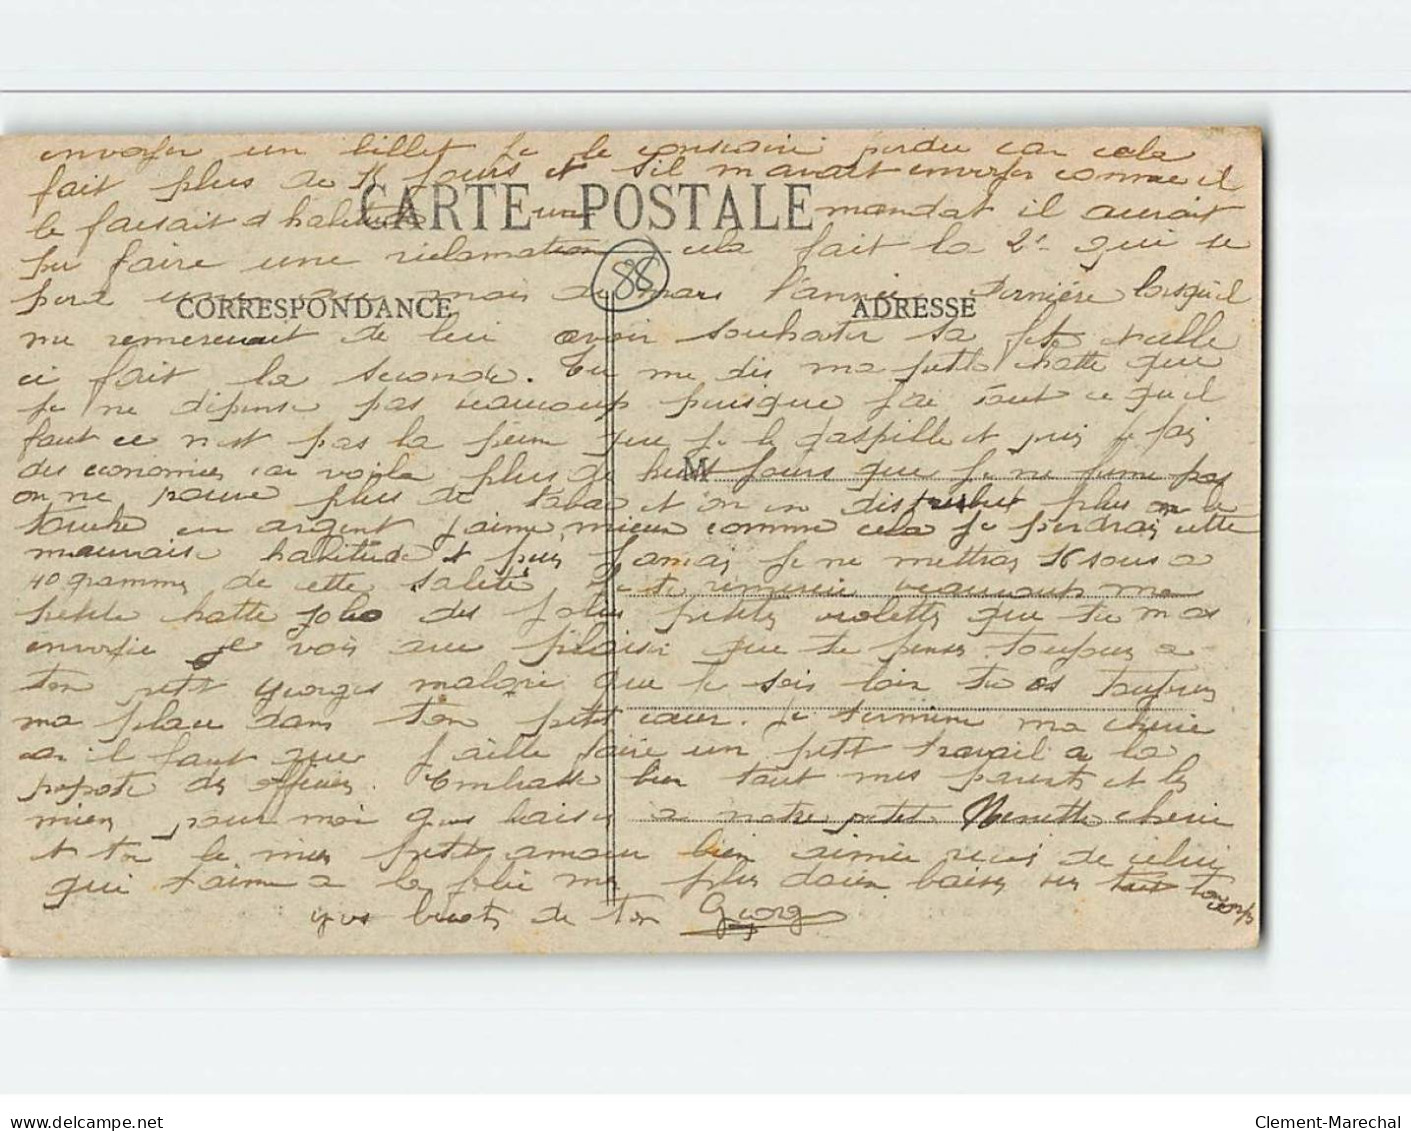 envoyer un billet je le considère perdu car cela
fait plus de 15 jours et s'il m'avait envoyer comme il
CARTE POSTALE
le faisait d'habitude un mandat il aurait
pu faire une réclamation cela fait la 2e qui se
88
perd une au mois de mars l'année dernière lorsqu'il
CORRESPONDANCE
ADRESSE
me remerciait de lui avoir souhaiter sa fête et celle
ci fait la seconde. Tu me dis ma petite chatte que
je ne dépense pas beaucoup puisque j'ai tout ce qu'il
faut ce n'est pas la peine que je le gaspille et puis je fais
des économies car voila plus de huit jours que je ne fume pas
M
on ne trouve plus de tabac et on en distribue plus on le
touche en argent j'aime mieux comme cela je perdrai cette
mauvaise habitude et puis jamais je ne mettrai 16 sous a
40 grammes de cette saleté. Je te remercie beaucoup ma
petite chatte jolie des jolies petites violettes que tu m'as
envoyée je vois avec plaisir que tu penses toujours a
ton petit Georges malgré que je sois loin tu as toujours
ma place dans ton petit cœur. Je termine ma cherie
car il faut que j'aille faire un petit travail a la
popote des officiers. Embrasse bien tout mes parents et les
miens pour moi gros baisers a notre petite Nénette cherie
et toi le mien petit amour bien aimée recois de celui
qui t'aime a la folie mes plus doux baisers sur tout ton corps
gros becots de ton Georges
Clement-Marechal